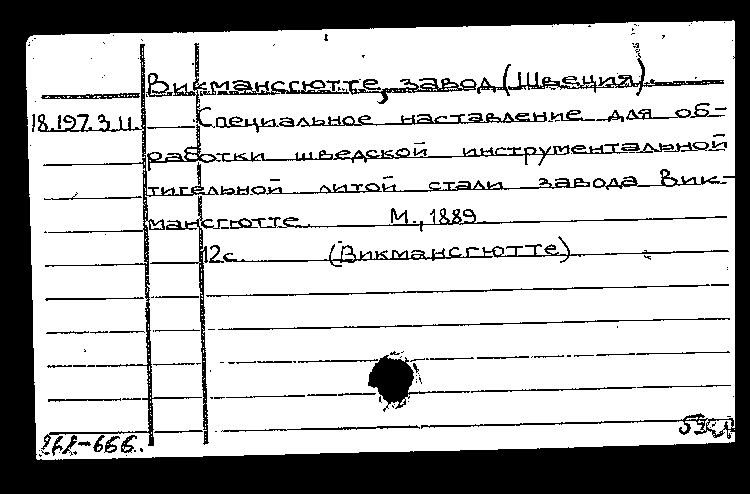 Викмансгютте, завод (Швеция).
18.197.3.11. Специальное наставление для об-
работки шведской инструментальной
тигельной литой стали завода Вик-
мансгютте. М., 1889.
12с. (Викмансгютте)
262-666.